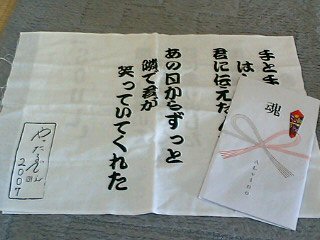 手と手
は
君に伝えた
あの日からずっと
隣で君が
笑っていてくれた
魂
2007